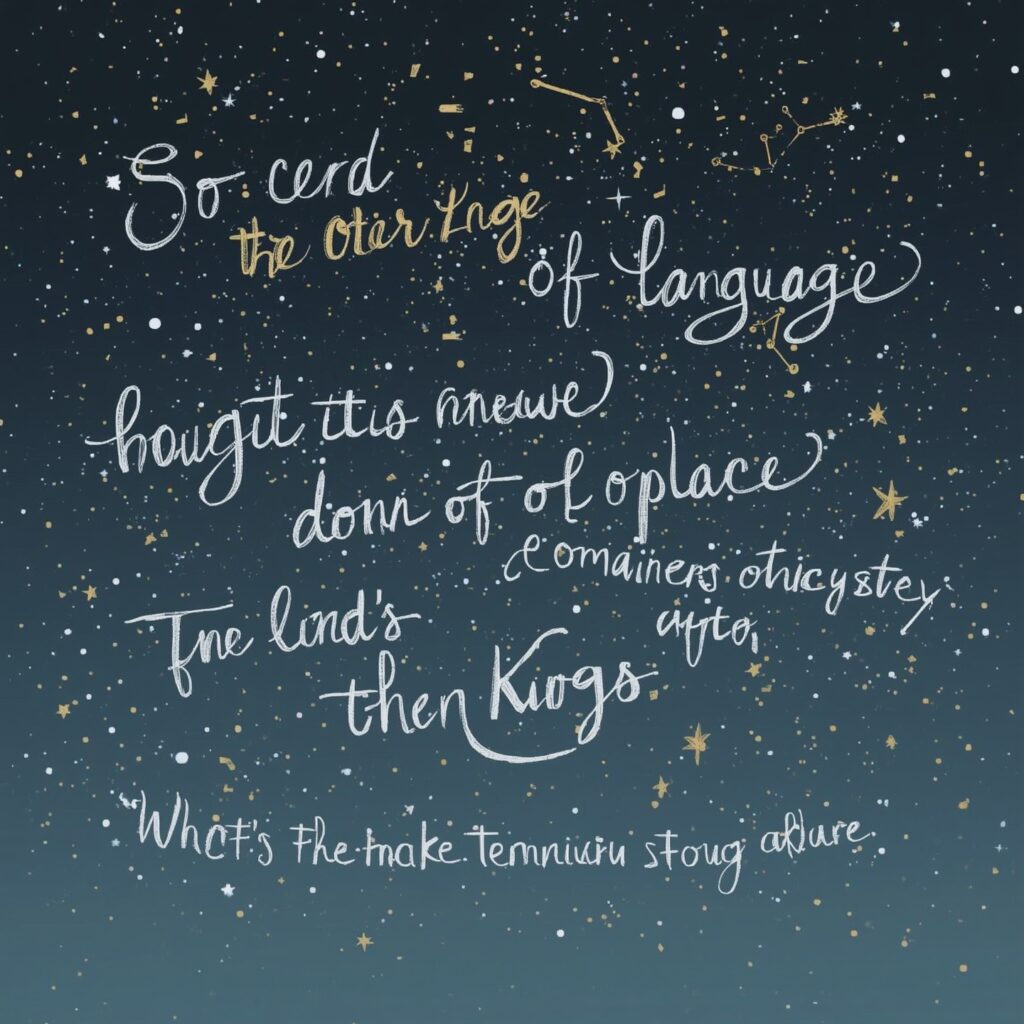 So cerd
the otar Lnge
of language
hougit ttis nneuwe
donn of of oplace
comainers othicystey
Tne lond's
ayto,
then Kiogs
"What's the make. Temniuru stoug